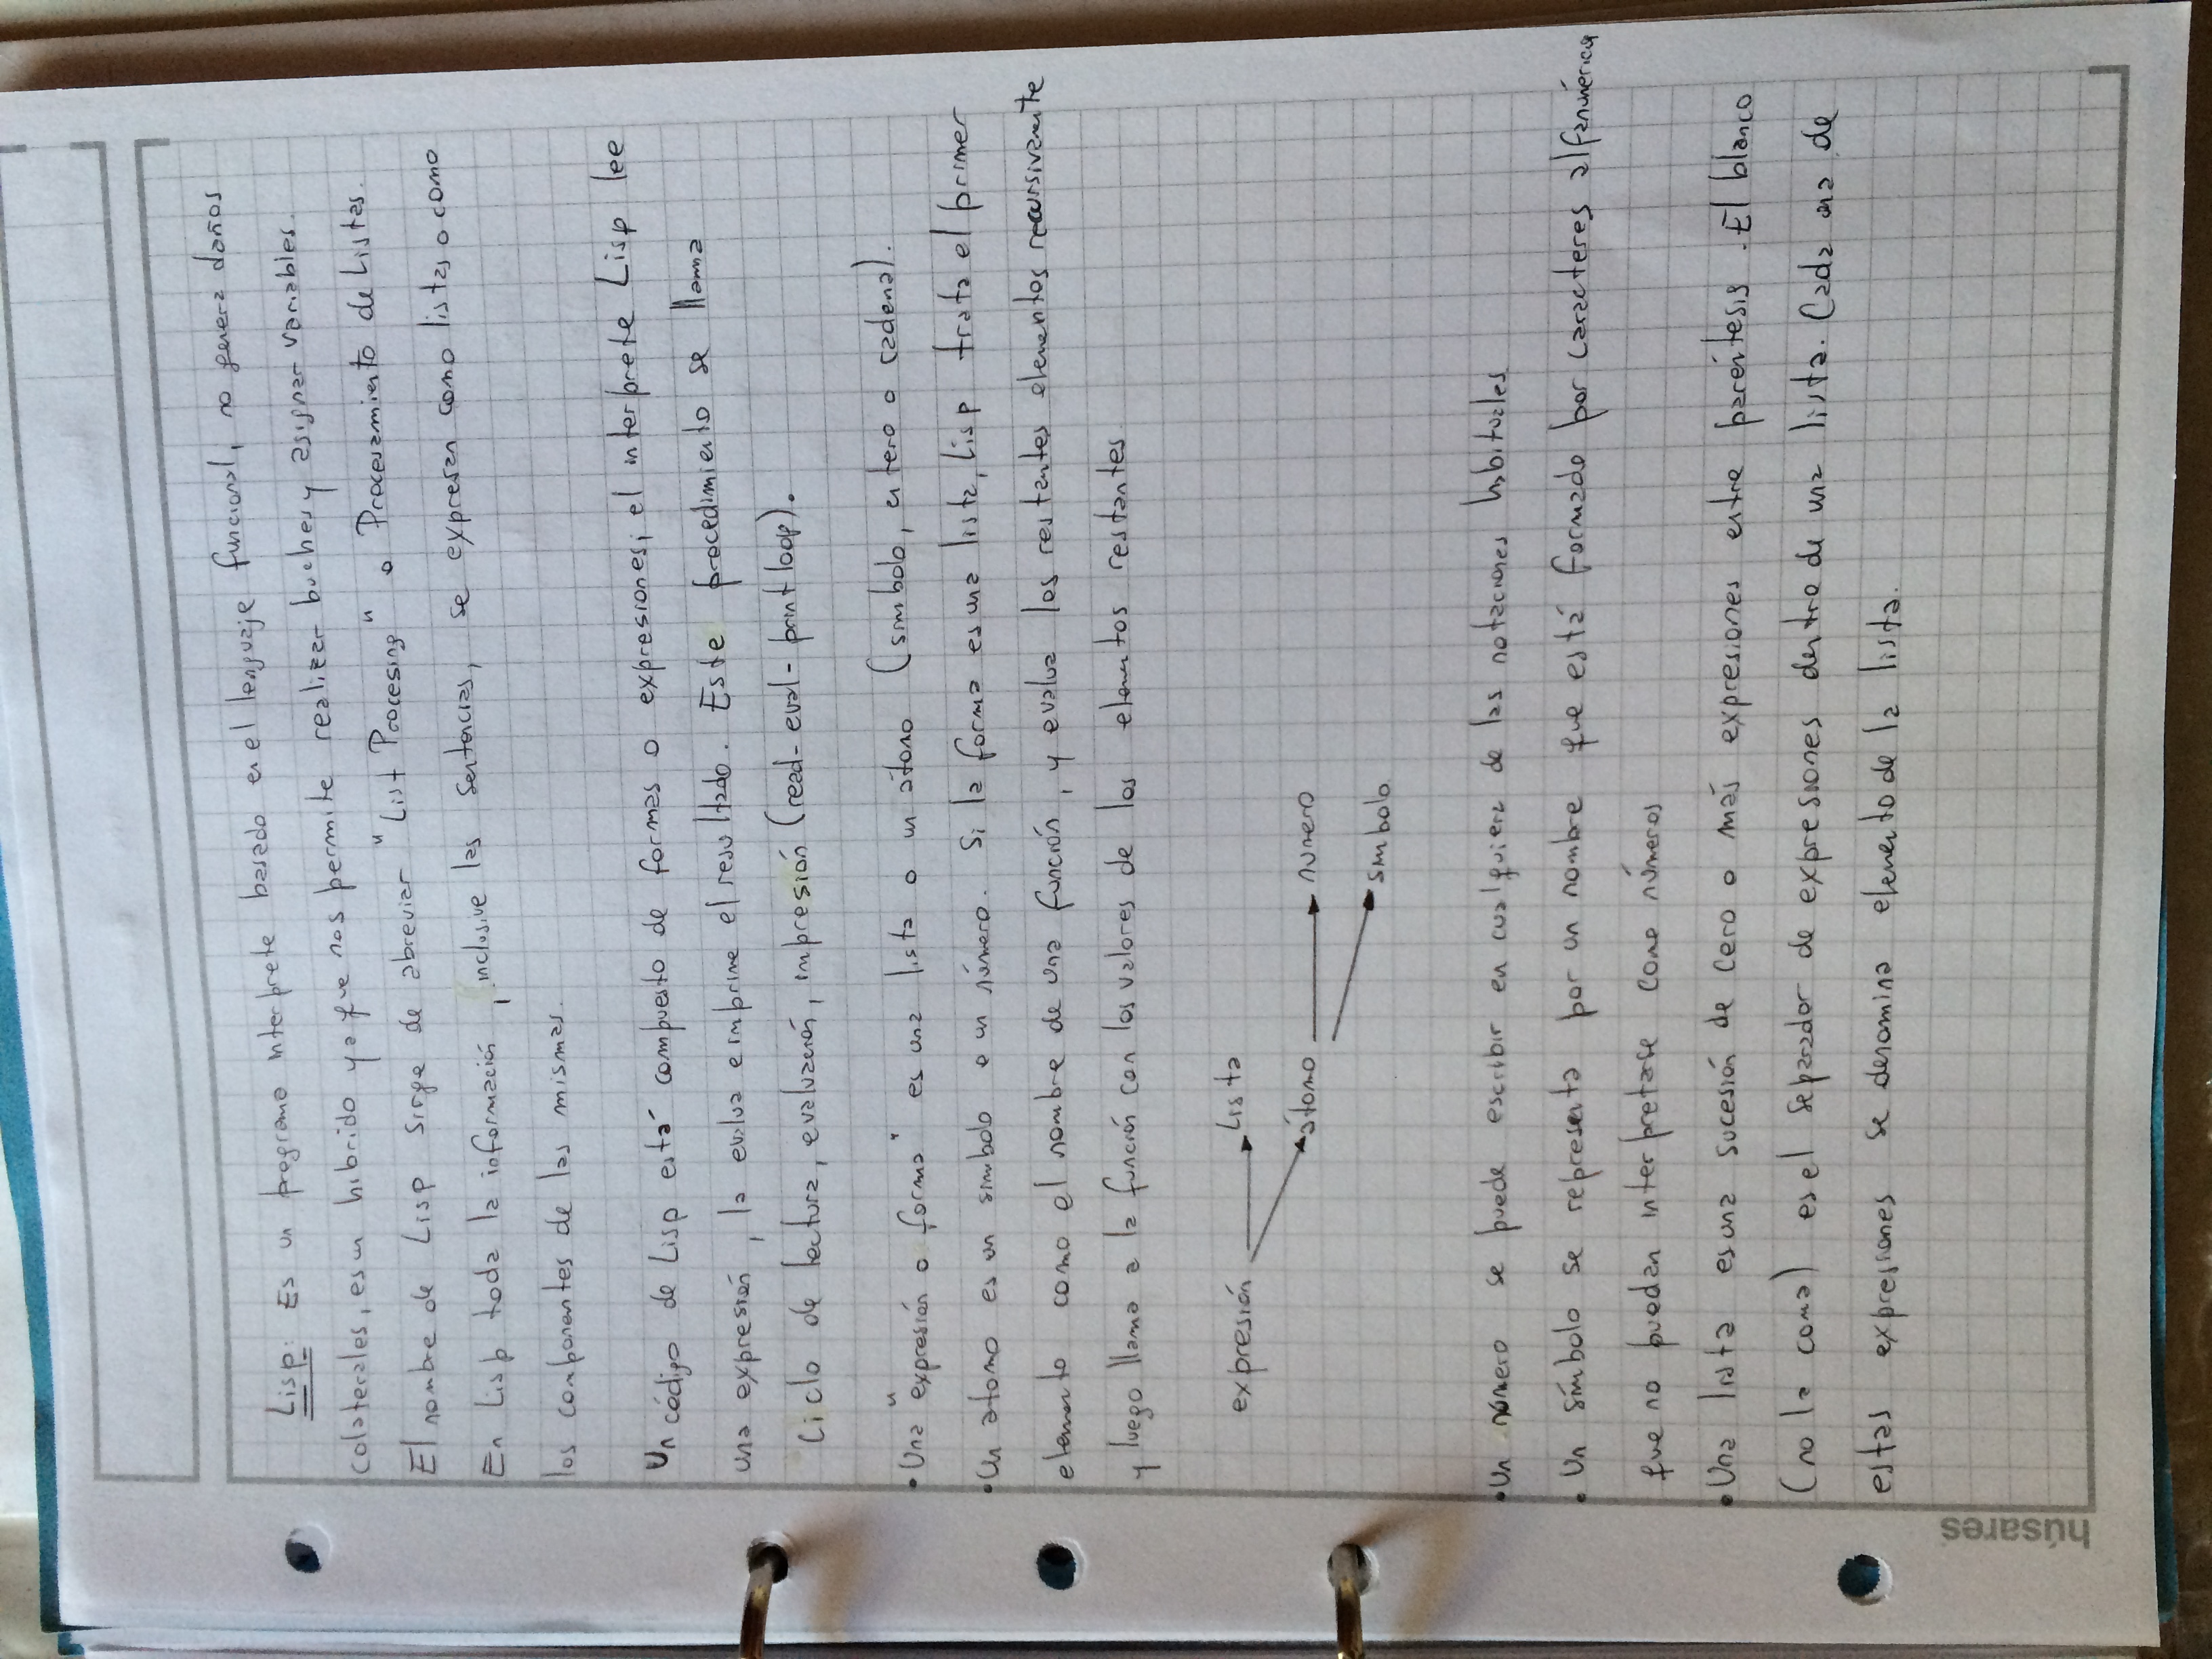 Lisp: Es un programa interprete basado en el lenguaje funcional, no genera daños
colaterales, es un hibrido ya que nos permite realizar bucles y asignar variables.
El nombre de Lisp surge de abreviar "List Procesing" o Procesamiento de Listas.
En Lisp toda la información, inclusive las sentencias, se expresan como listas o como
los componentes de las mismas.
Un código de Lisp está compuesto de formas o expresiones; el interprete Lisp lee
una expresión, la evalua e imprime el resultado. Este procedimiento se llama
Ciclo de lectura, evaluación, impresión (read-eval-print loop).
• Una "expresión o forma" es una lista o un átomo (simbolo, entero o cadena).
• Un atomo es un simbolo o un número. Si la forma es una lista, Lisp trata el primer
elemento como el nombre de una función, y evalua los restantes elementos recursivamente
y luego llama a la función con los valores de los elementos restantes.
expresión Lista
átomo numero
simbolo
• Un número se puede escribir en cualquiera de las notaciones habituales.
• Un símbolo se representa por un nombre que está formado por caracteres alfanuméricos
que no puedan interpretarse como números
• Una lista es una sucesión de cero o más expresiones entre paréntesis. El blanco
(no la coma) es el separador de expresiones dentro de una lista. Cada una de
estas expresiones se denomina elemento de la lista.
húsares